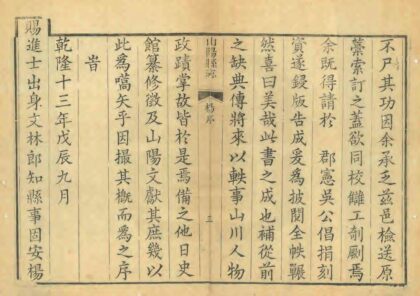 不尸其功因余承乏茲邑檢送原
藁索訂之蓋欲同校讎工剞劂焉
余既得請於 郡憲吳公倡捐刻
資遂鋟版告成爰為披閱全帙輾
然喜曰美哉此書之成也補從前
之缺典傳將來以軼事山川人物
山陽縣志 序 三
政蹟掌故皆於是焉備之他日史
館纂修徵及山陽文獻其庶幾以
此為嚆矢乎因撮其概而為之序
旹
乾隆十三年戊辰九月
賜進士出身文林郎知縣事固安楊